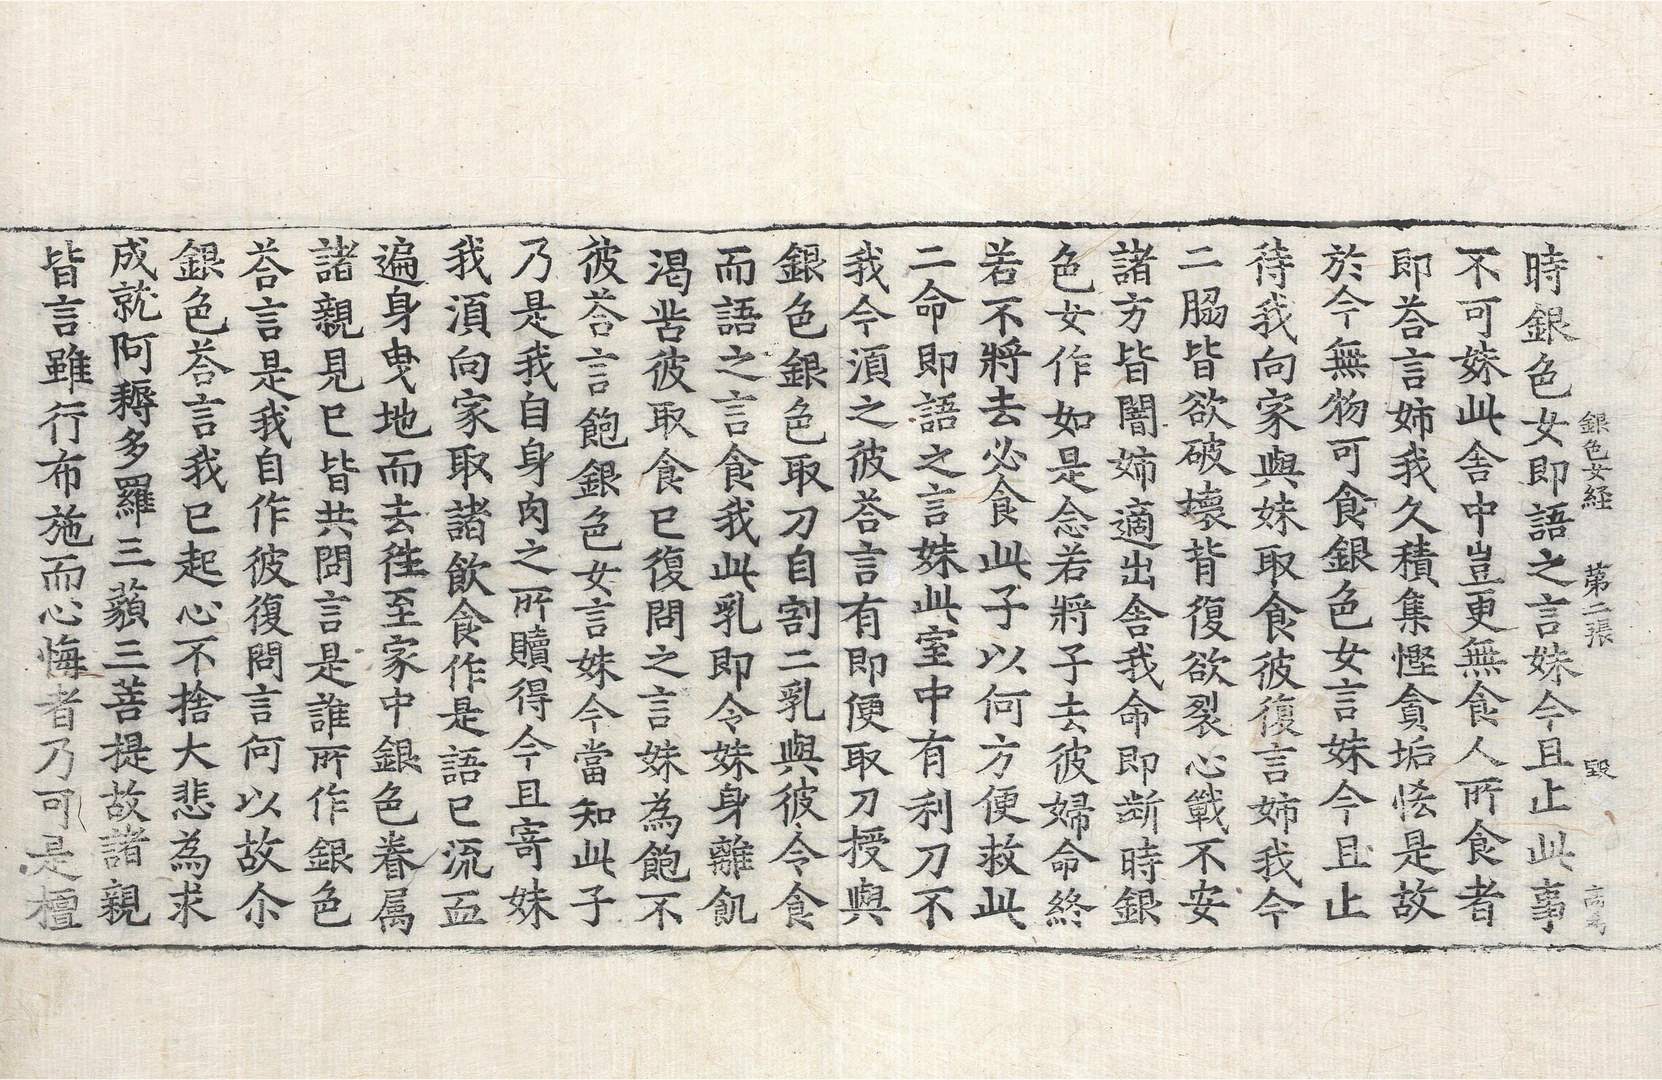 銀色女経 第二張 毀
時銀色女即語之言妹今且止此事
不可妹此舎中豈更無食人所食者
即荅言姉我久積集慳貪垢恡是故
於今無物可食銀色女言妹今且止
待我向家與妹取食彼復言姉我今
二脇皆欲破壞背復欲裂心戰不安
諸方皆闇姉適出舎我命即断時銀
色女作如是念若將子去彼婦命終
若不將去必食此子以何方便救此
二命即語之言妹此室中有利刀不
我今須之彼荅言有即便取刀授與
銀色銀色取刀自割二乳與彼令食
而語之言食我此乳即令妹身離飢
渴苦彼取食已復問之言妹為飽不
彼荅言飽銀色女言妹今當知此子
乃是我自身肉之所贖得今且寄妹
我須向家取諸飲食作是語已流血
遍身曳地而去徃至家中銀色眷属
諸親見已皆共問言是誰所作銀色
荅言是我自作彼復問言何以故尒
銀色荅言我已起心不捨大悲為求
成就阿耨多羅三藐三菩提故諸親
皆言雖行布施而心悔者乃可是檀